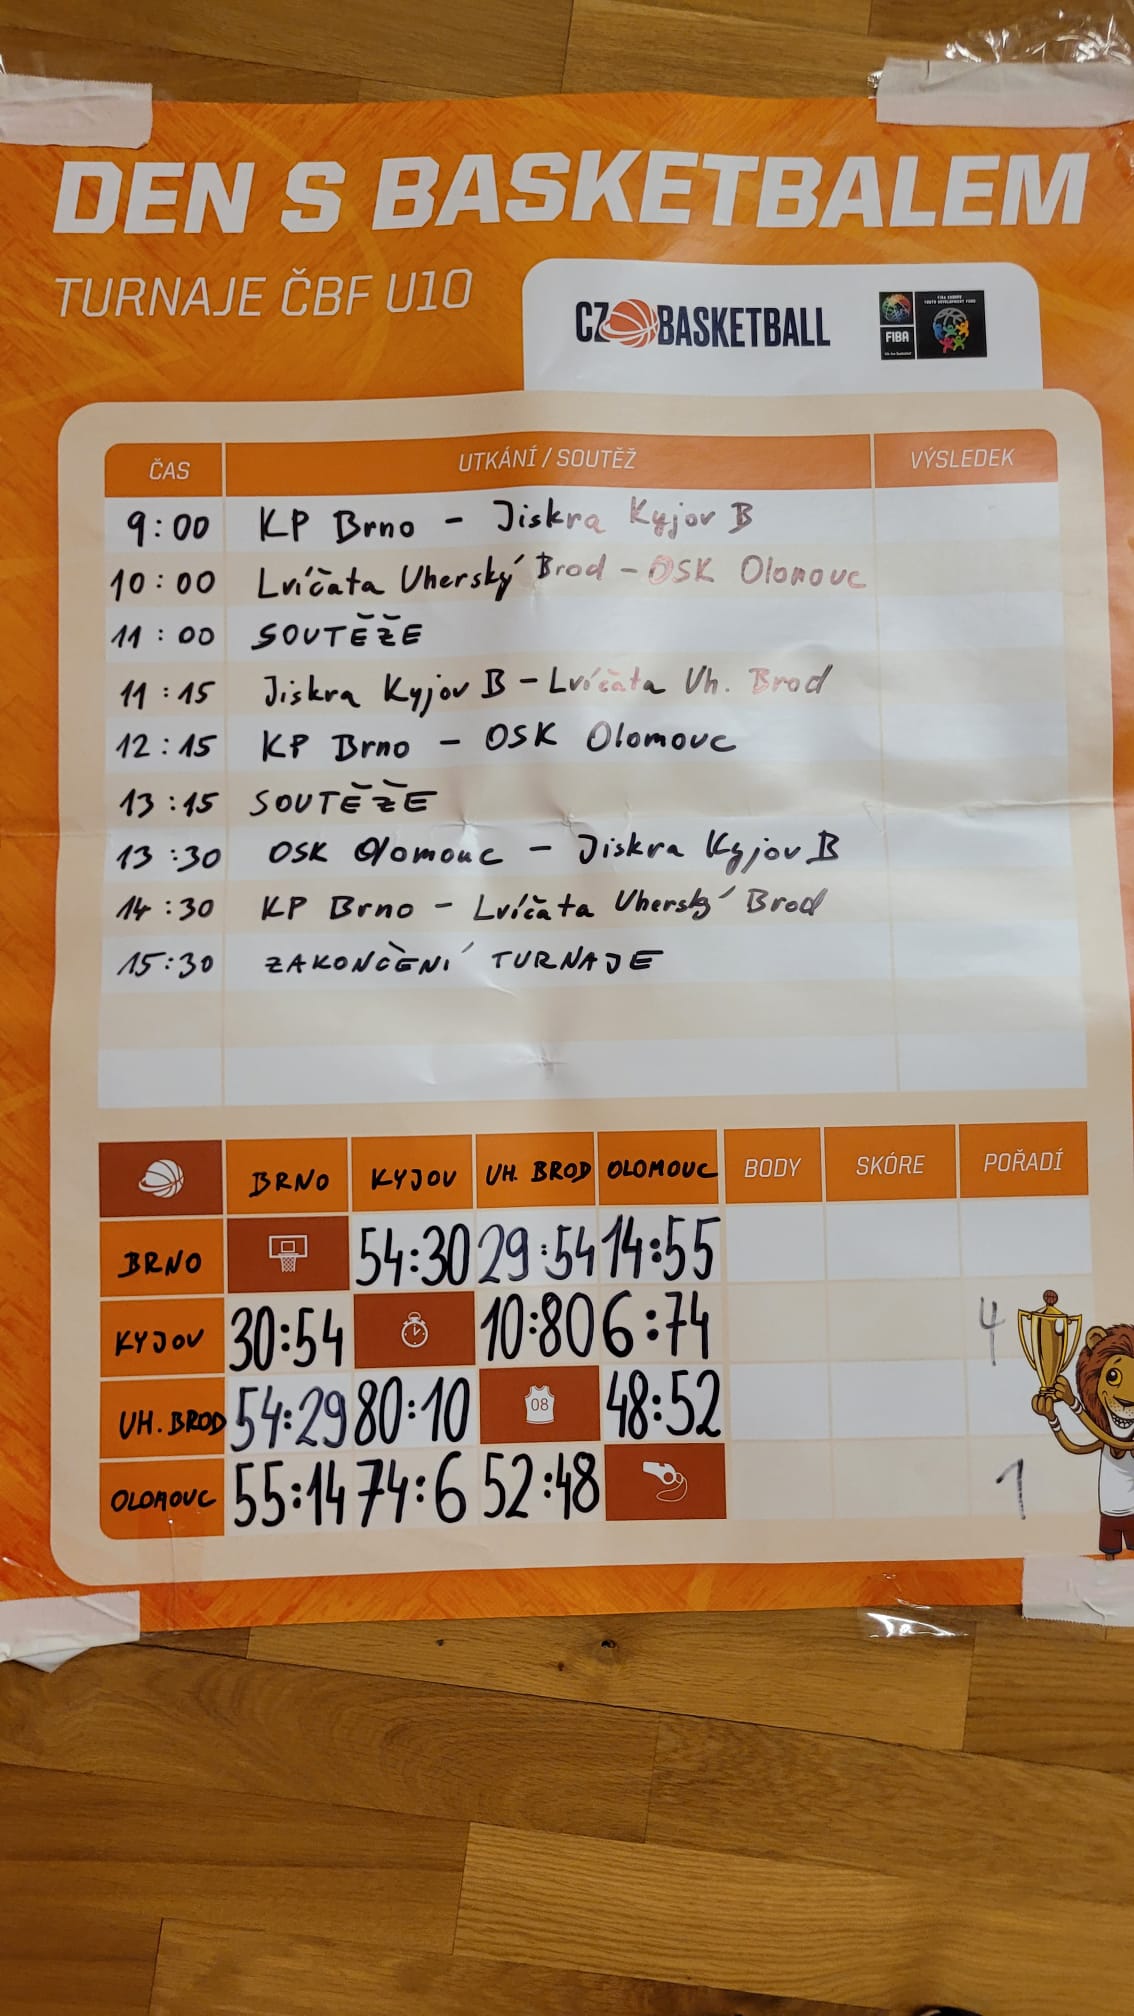 DEN S BASKETBALEM
TURNAJE ČBF U10
CZ BASKETBALL
FIBA
ČAS UTKÁNÍ / SOUTĚŽ VÝSLEDEK
9:00 KP Brno - Jiskra Kyjov B
10:00 Lvíčata Uherský Brod - OSK Olomouc
11:00 SOUTĚŽE
11:15 Jiskra Kyjov B - Lvíčata Uh. Brod
12:15 KP Brno - OSK Olomouc
13:15 SOUTĚŽE
13:30 OSK Olomouc - Jiskra Kyjov B
14:30 KP Brno - Lvíčata Uherský Brod
15:30 ZAKONČENÍ TURNAJE
BRNO KYJOV UH. BROD OLOMOUC BODY SKÓRE POŘADÍ
BRNO 54:30 29:54 14:55
KYJOV 30:54 10:80 6:74 4
UH. BROD 54:29 80:10 08 48:52
OLOMOUC 55:14 74:6 52:48 1